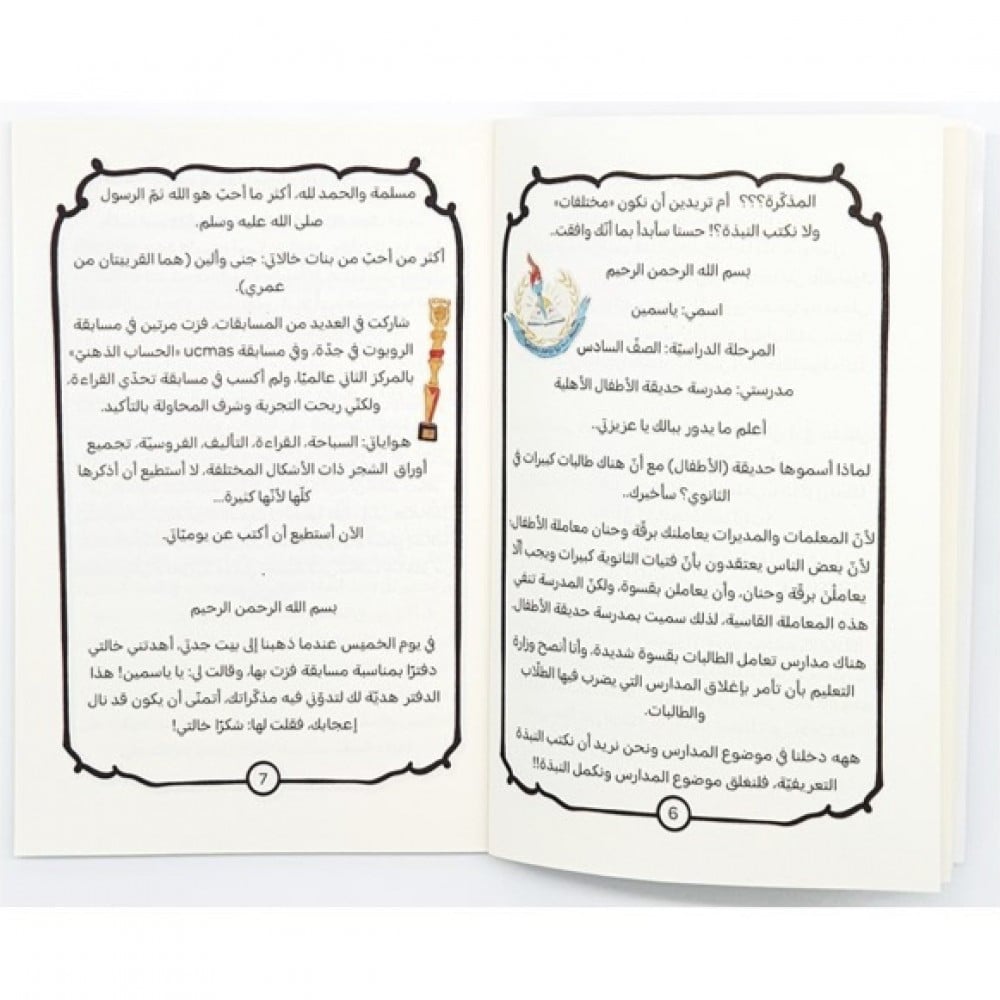 المذكّرة؟؟؟ أم تريدين أن نكون «مختلفات»
ولا نكتب النبذة؟! حسنا سأبدأ بما أنّك وافقت..
بسم الله الرحمن الرحيم
اسمي: ياسمين
المرحلة الدراسيّة: الصفّ السادس
مدرستي: مدرسة حديقة الأطفال الأهلية
أعلم ما يدور ببالك يا عزيزتي..
لماذا أسموها حديقة (الأطفال) مع أنّ هناك طالبات كبيرات في
الثانوي؟ سأخبرك..
لأنّ المعلمات والمديرات يعاملنك برقّة وحنان معاملة الأطفال
لأنّ بعض الناس يعتقدون بأنّ فتيات الثانوية كبيرات ويجب ألّا
يعاملْنَ برقّة وحنان، وأن يعاملن بقسوة، ولكنّ المدرسة تنفي
هذه المعاملة القاسية، لذلك سميت بمدرسة حديقة الأطفال.
هناك مدارس تعامل الطالبات بقسوة شديدة، وأنا أنصح وزارة
التعليم بأن تأمر بإغلاق المدارس التي يضرب فيها الطلّاب
والطالبات.
ههه دخلنا في موضوع المدارس ونحن نريد أن نكتب النبذة
التعريفيّة، فلنغلق موضوع المدارس ونكمل النبذة!!
6
مسلمة والحمد لله، أكثر ما أحبّ هو الله ثمّ الرسول
صلى الله عليه وسلم.
أكثر من أحبّ من بنات خالاتي: جنى وألين (هما القريبتان من
عمري).
شاركت في العديد من المسابقات، فزت مرتين في مسابقة
الروبوت في جدّة، وفي مسابقة ucmas «الحساب الذهنيّ»
بالمركز الثاني عالميًا، ولم أكسب في مسابقة تحدّي القراءة،
ولكنّي ربحت التجربة وشرف المحاولة بالتأكيد.
هواياتي: السباحة، القراءة، التأليف، الفروسيّة، تجميع
أوراق الشجر ذات الأشكال المختلفة، لا أستطيع أن أذكرها
كلّها لأنّها كثيرة....
الآن أستطيع أن أكتب عن يوميّاتي.
بسم الله الرحمن الرحيم
في يوم الخميس عندما ذهبنا إلى بيت جدتي، أهدتني خالتي
دفترًا بمناسبة مسابقة فزت بها، وقالت لي: يا ياسمين! هذا
الدفتر هديّة لك لتدوّني فيه مذكّراتك، أتمنّى أن يكون قد نال
إعجابك، فقلت لها: شكرًا خالتي!
7